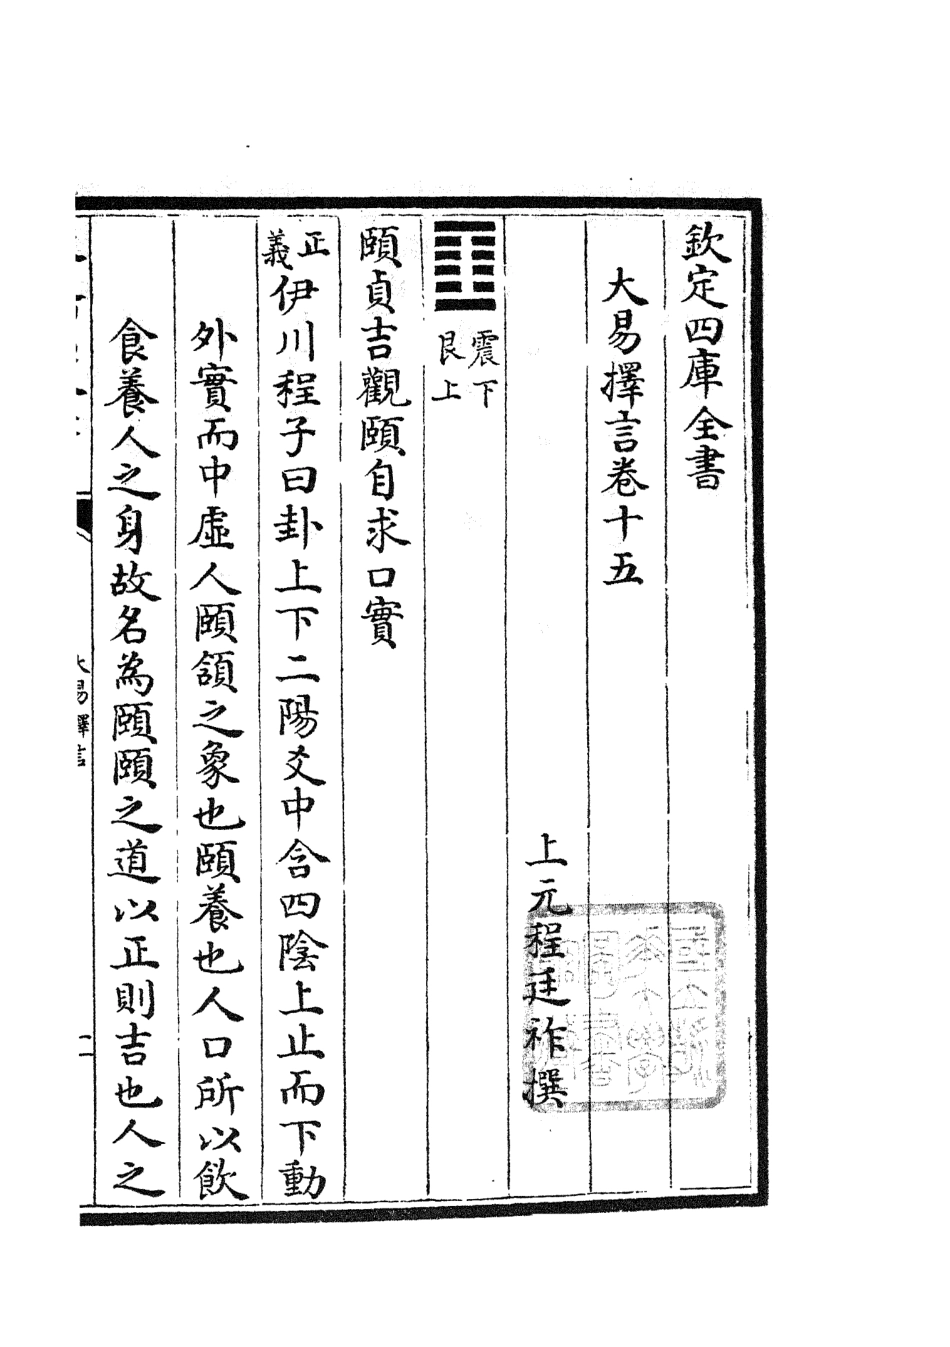 欽定四庫全書
大易擇言卷十五
上元程廷祚撰
震下
艮上
頤貞吉觀頤自求口實
正義伊川程子曰卦上下二陽爻中含四陰上止而下動
外實而中虛人頤頷之象也頤養也人口所以飲
食養人之身故名為頤頤之道以正則吉也人之
大易擇言